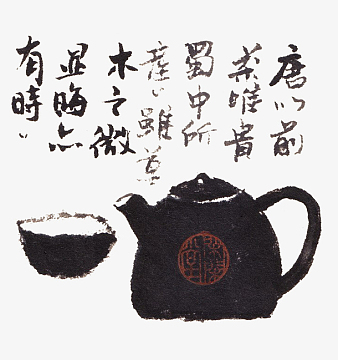 唐以前
茶唯贵
蜀中所
産虽草
木之微
显晦亦
有時